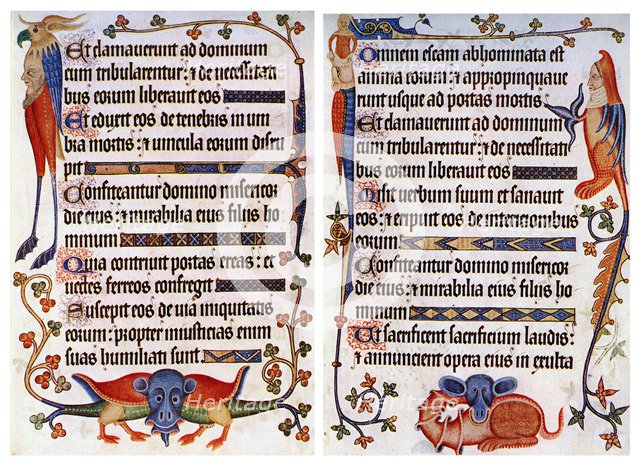 Et clamauerunt ad dominum
cum tribularentur : & de necessitati
bus eorum liberauit eos
Et eduxit eos de tenebris in um
bra mortis : & uincula eorum disru
pit
Confiteantur domino misericor
die eius : & mirabilia eius filiis ho
minum
Quia contriuit portas ereas : et
uectes ferreos confregit
Suscepit eos de uia iniquitatis
eorum : propter iniusticias enim
suas humiliati sunt
Omnem escam abhominata est
anima eorum : & appropinquaue
runt usque ad portas mortis
Et clamauerunt ad dominum
cum tribularentur : & de necessitati
bus eorum liberauit eos
Misit uerbum suum et sanauit
eos : & eripuit eos de intericionibus
eorum
Confiteantur domino misericor
die eius : & mirabilia eius filiis ho
minum
Et sacrificent sacrificium laudis :
& annuncient opera eius in exulta
Heritage
Heritage